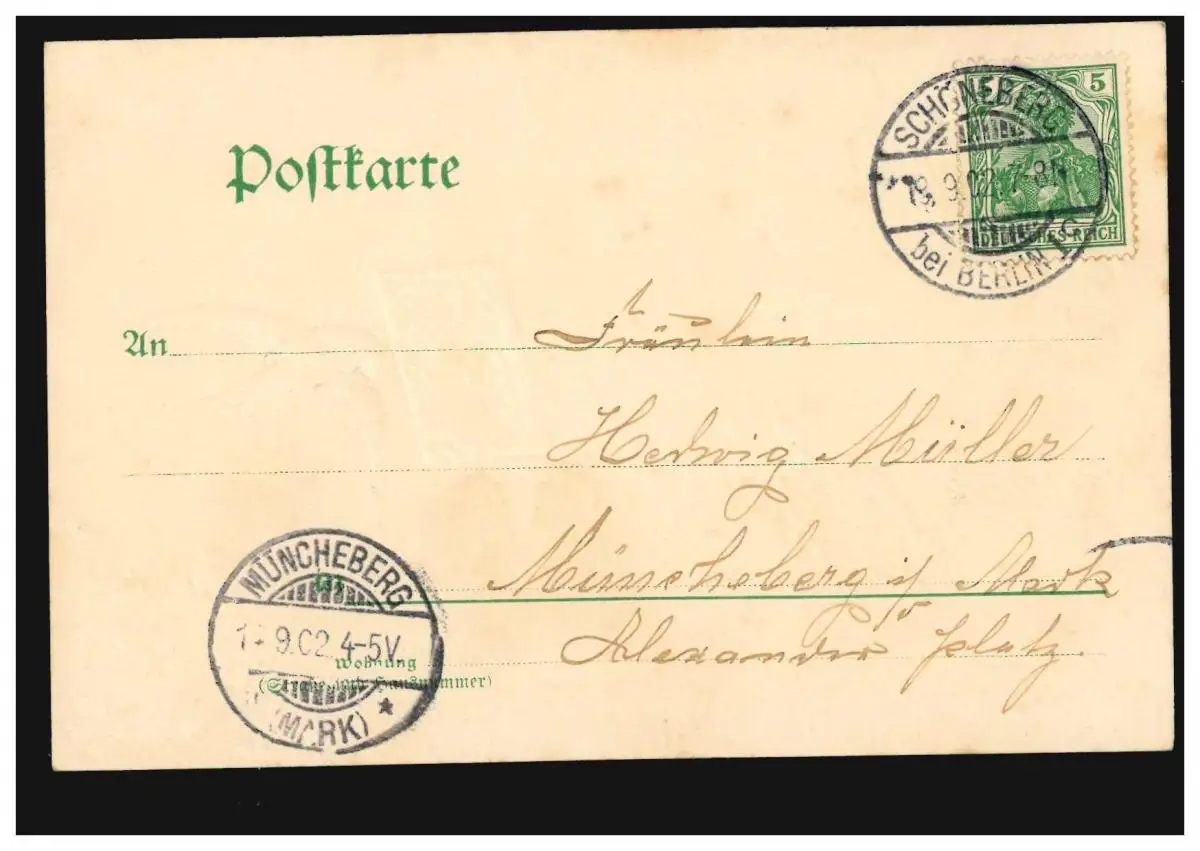 Postkarte
5
DEUTSCHES REICH
SCHÖNEBERG
9.02. 7-8N
bei BERLIN
An Fräulein
Hedwig Müller
in Müncheberg i/ Mark
Alexander platz.
Wohnung
(Straße und Hausnummer)
MÜNCHEBERG
9.02 4-5V
(MARK)